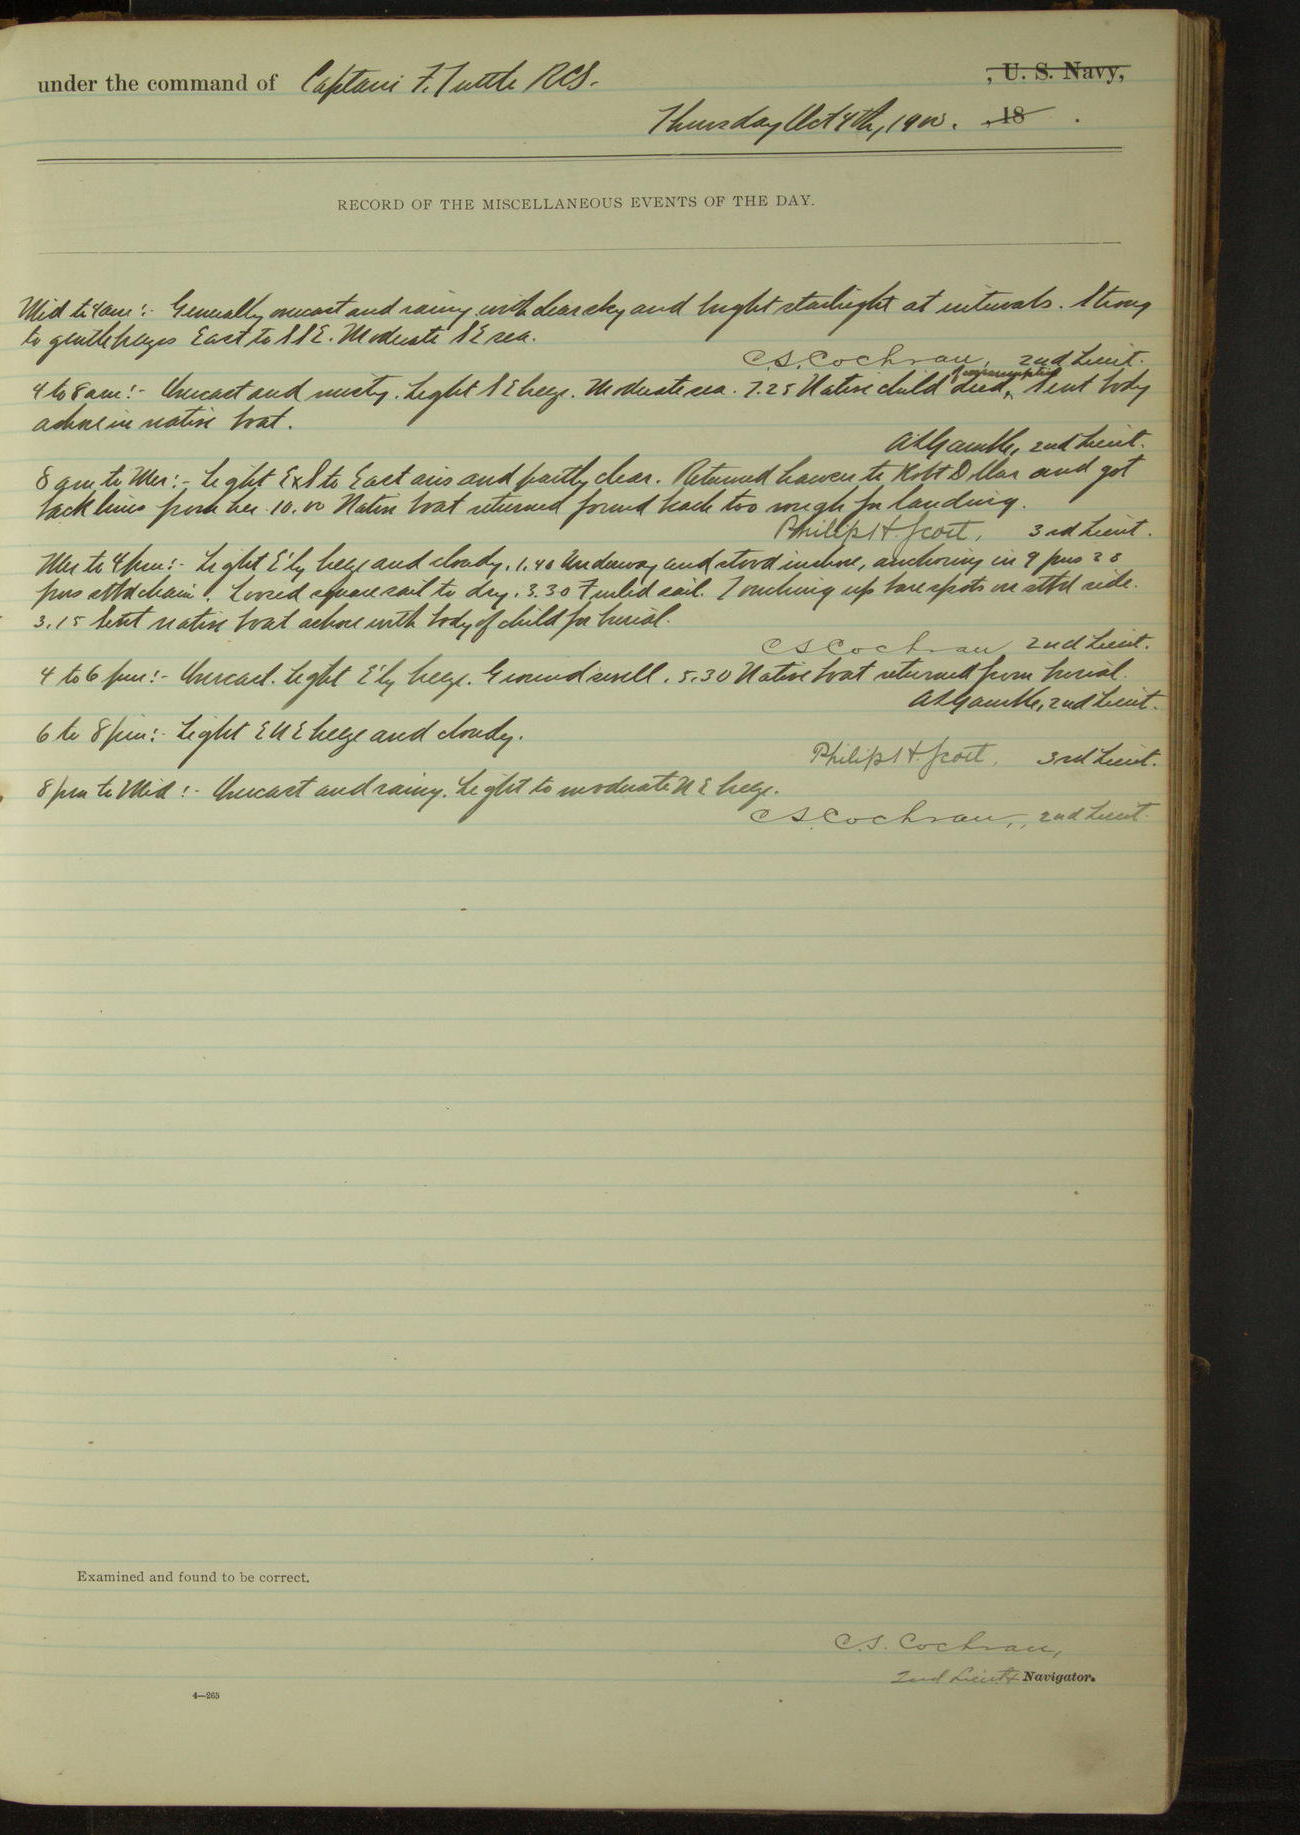 under the command of Captain F. Tuttle RCS. , U. S. Navy,
Thursday Oct 4th, 1900. , 18 .
RECORD OF THE MISCELLANEOUS EVENTS OF THE DAY.
Mid to 4 am:- Generally overcast and rainy with clear sky and bright starlight at intervals. Strong
to gentle breezes East to SSE. Moderate SE sea.
C.S. Cochran, 2nd Lieut.
4 to 8 am:- Overcast and misty. Light SE breeze. Moderate sea. 7.25 Native child died, of consumption Sent body
ashore in native boat.
2nd Lieut.
8 am to Mer:- Light ExS to East airs and partly clear. Returned hawser to Robt Dollar and got
back lines from her. 10.00 Native boat returned found beach too rough for landing.
Philip H. Scott, 3rd Lieut.
Mer to 4 pm:- Light E'ly breeze and cloudy. 1.40 Underway and stood inshore, anchoring in 9 fms 28
fms stbd chain. Loosed square sail to dry. 3.30 Furled sail. Touching up bare spots on stbd side.
3.15 Sent native boat ashore with body of child for burial.
C S Cochran 2nd Lieut.
4 to 6 pm:- Overcast. Light E'ly breeze. Ground swell. 5.30 Native boat returned from burial.
2nd Lieut.
6 to 8 pm:- Light ENE breeze and cloudy.
Philip H. Scott, 3rd Lieut.
8 pm to Mid:- Overcast and rainy. Light to moderate NE breeze.
C S. Cochran, 2nd Lieut.
Examined and found to be correct.
C.S. Cochran,
2nd Lieut & Navigator.
4—265